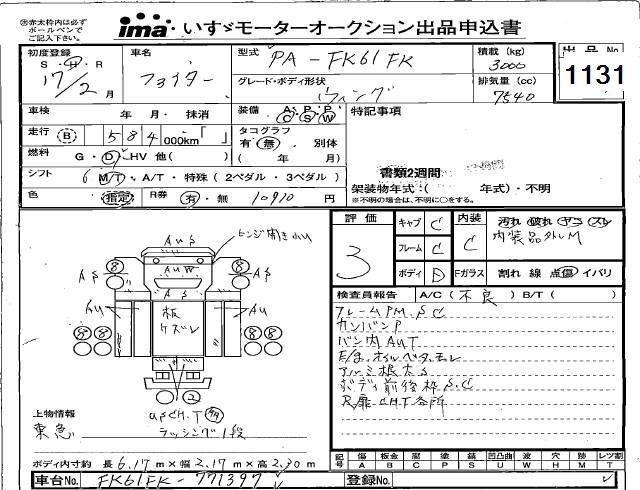 ※赤太枠内は必ず
ボールペンで
ご記入下さい。
ima いすゞモーターオークション出品申込書
初度登録
S・H・R
17/2月
車名
ファイター
型式
PA-FK61FK
積載(kg)
3000
出品No
1131
グレード・ボディ形状
ウィング
排気量(cc)
7540
車検 年 月・抹消
装備 A C P S P W
特記事項
走行 B 584 000km「 」
タコグラフ
有・無・別体
( 年 月)
燃料 G・D・HV 他( )
書類2週間
シフト 6 M/T・A/T・特殊(2ペダル・3ペダル)
架装物年式:( 年式)・不明
※不明の場合は、不明に○をする。
色 指定 R券 有・無 10910円
評価
3
キャブ C
フレーム C
ボディ D
内装 C
汚れ 破れ ヤコ スレ
内装品外しM
Fガラス 割れ 線 点傷 イバリ
ヒンジ開き小U
AuS
AS
AuW
AS
Au
板
ケズレ
Au
検査員報告 A/C(不良)B/T( )
フレームPM.SC
カンバンP
バン内AUT
E/g.オイルベタ.モレ
アルミ根太S
ボディ前後枠S.C
R扉CH.T各所
上物情報
東急
ラッシング1段
ボディ内寸約 長6.17m×幅2.17m×高2.30m
記号
傷 板金 腐 塗 錆 凹凸曲 波 穴 跡 レツ割
A B C P S U W H M T
車台No. FK61FK-771397
登録No.